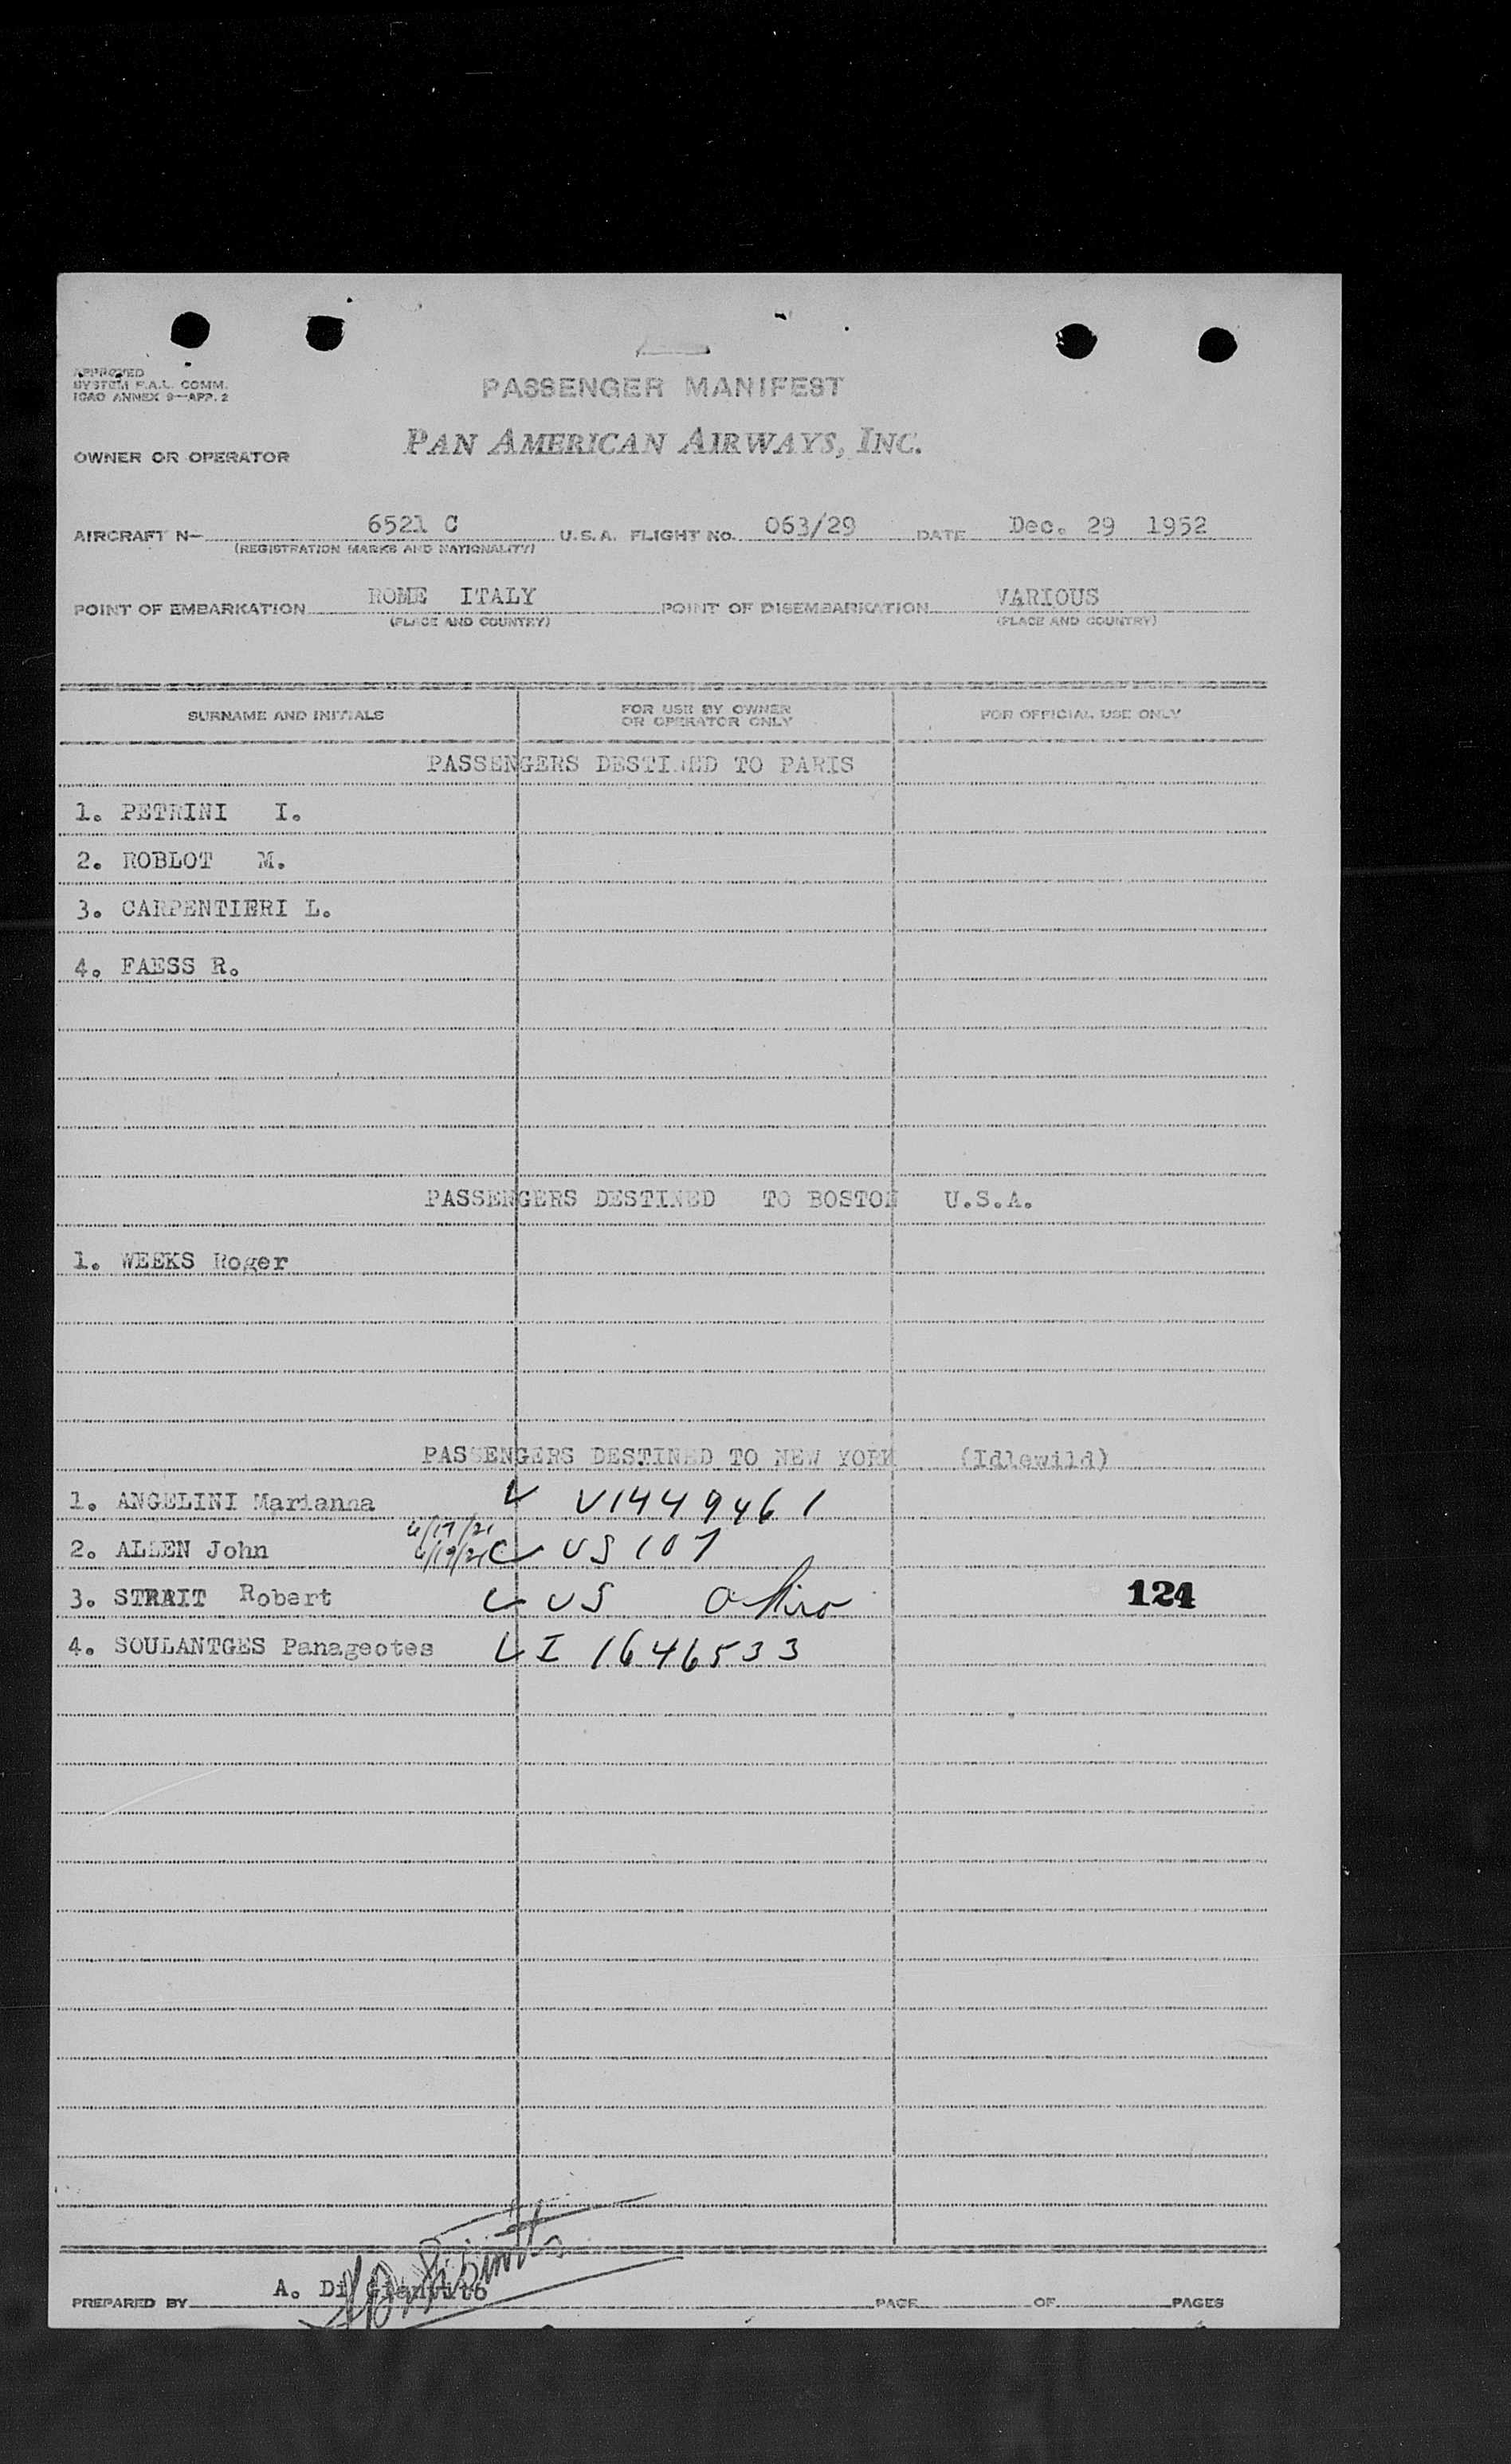 APPROVED
SYSTEM F.A.L. COMM.
ICAO ANNEX 9—APP. 2
PASSENGER MANIFEST
OWNER OR OPERATOR PAN AMERICAN AIRWAYS, INC.
AIRCRAFT N- 6521 C U.S.A. FLIGHT NO. 063/29 DATE Dec. 29 1952
(REGISTRATION MARKS AND NATIONALITY)
POINT OF EMBARKATION ROME ITALY POINT OF DISEMBARKATION VARIOUS
(PLACE AND COUNTRY) (PLACE AND COUNTRY)
SURNAME AND INITIALS FOR USE BY OWNER OR OPERATOR ONLY FOR OFFICIAL USE ONLY
PASSENGERS DESTINED TO PARIS
1. PETRINI I.
2. ROBLOT M.
3. CARPENTIERI L.
4. FAESS R.
PASSENGERS DESTINED TO BOSTON U.S.A.
1. WEEKS Roger
PASSENGERS DESTINED TO NEW YORK (Idlewild)
1. ANGELINI Marianna V1449461
2. ALLEN John US 107
3. STRAIT Robert US Ohio 124
4. SOULANTGES Panageotes I 1646533
PREPARED BY A. Di PAGE OF PAGES